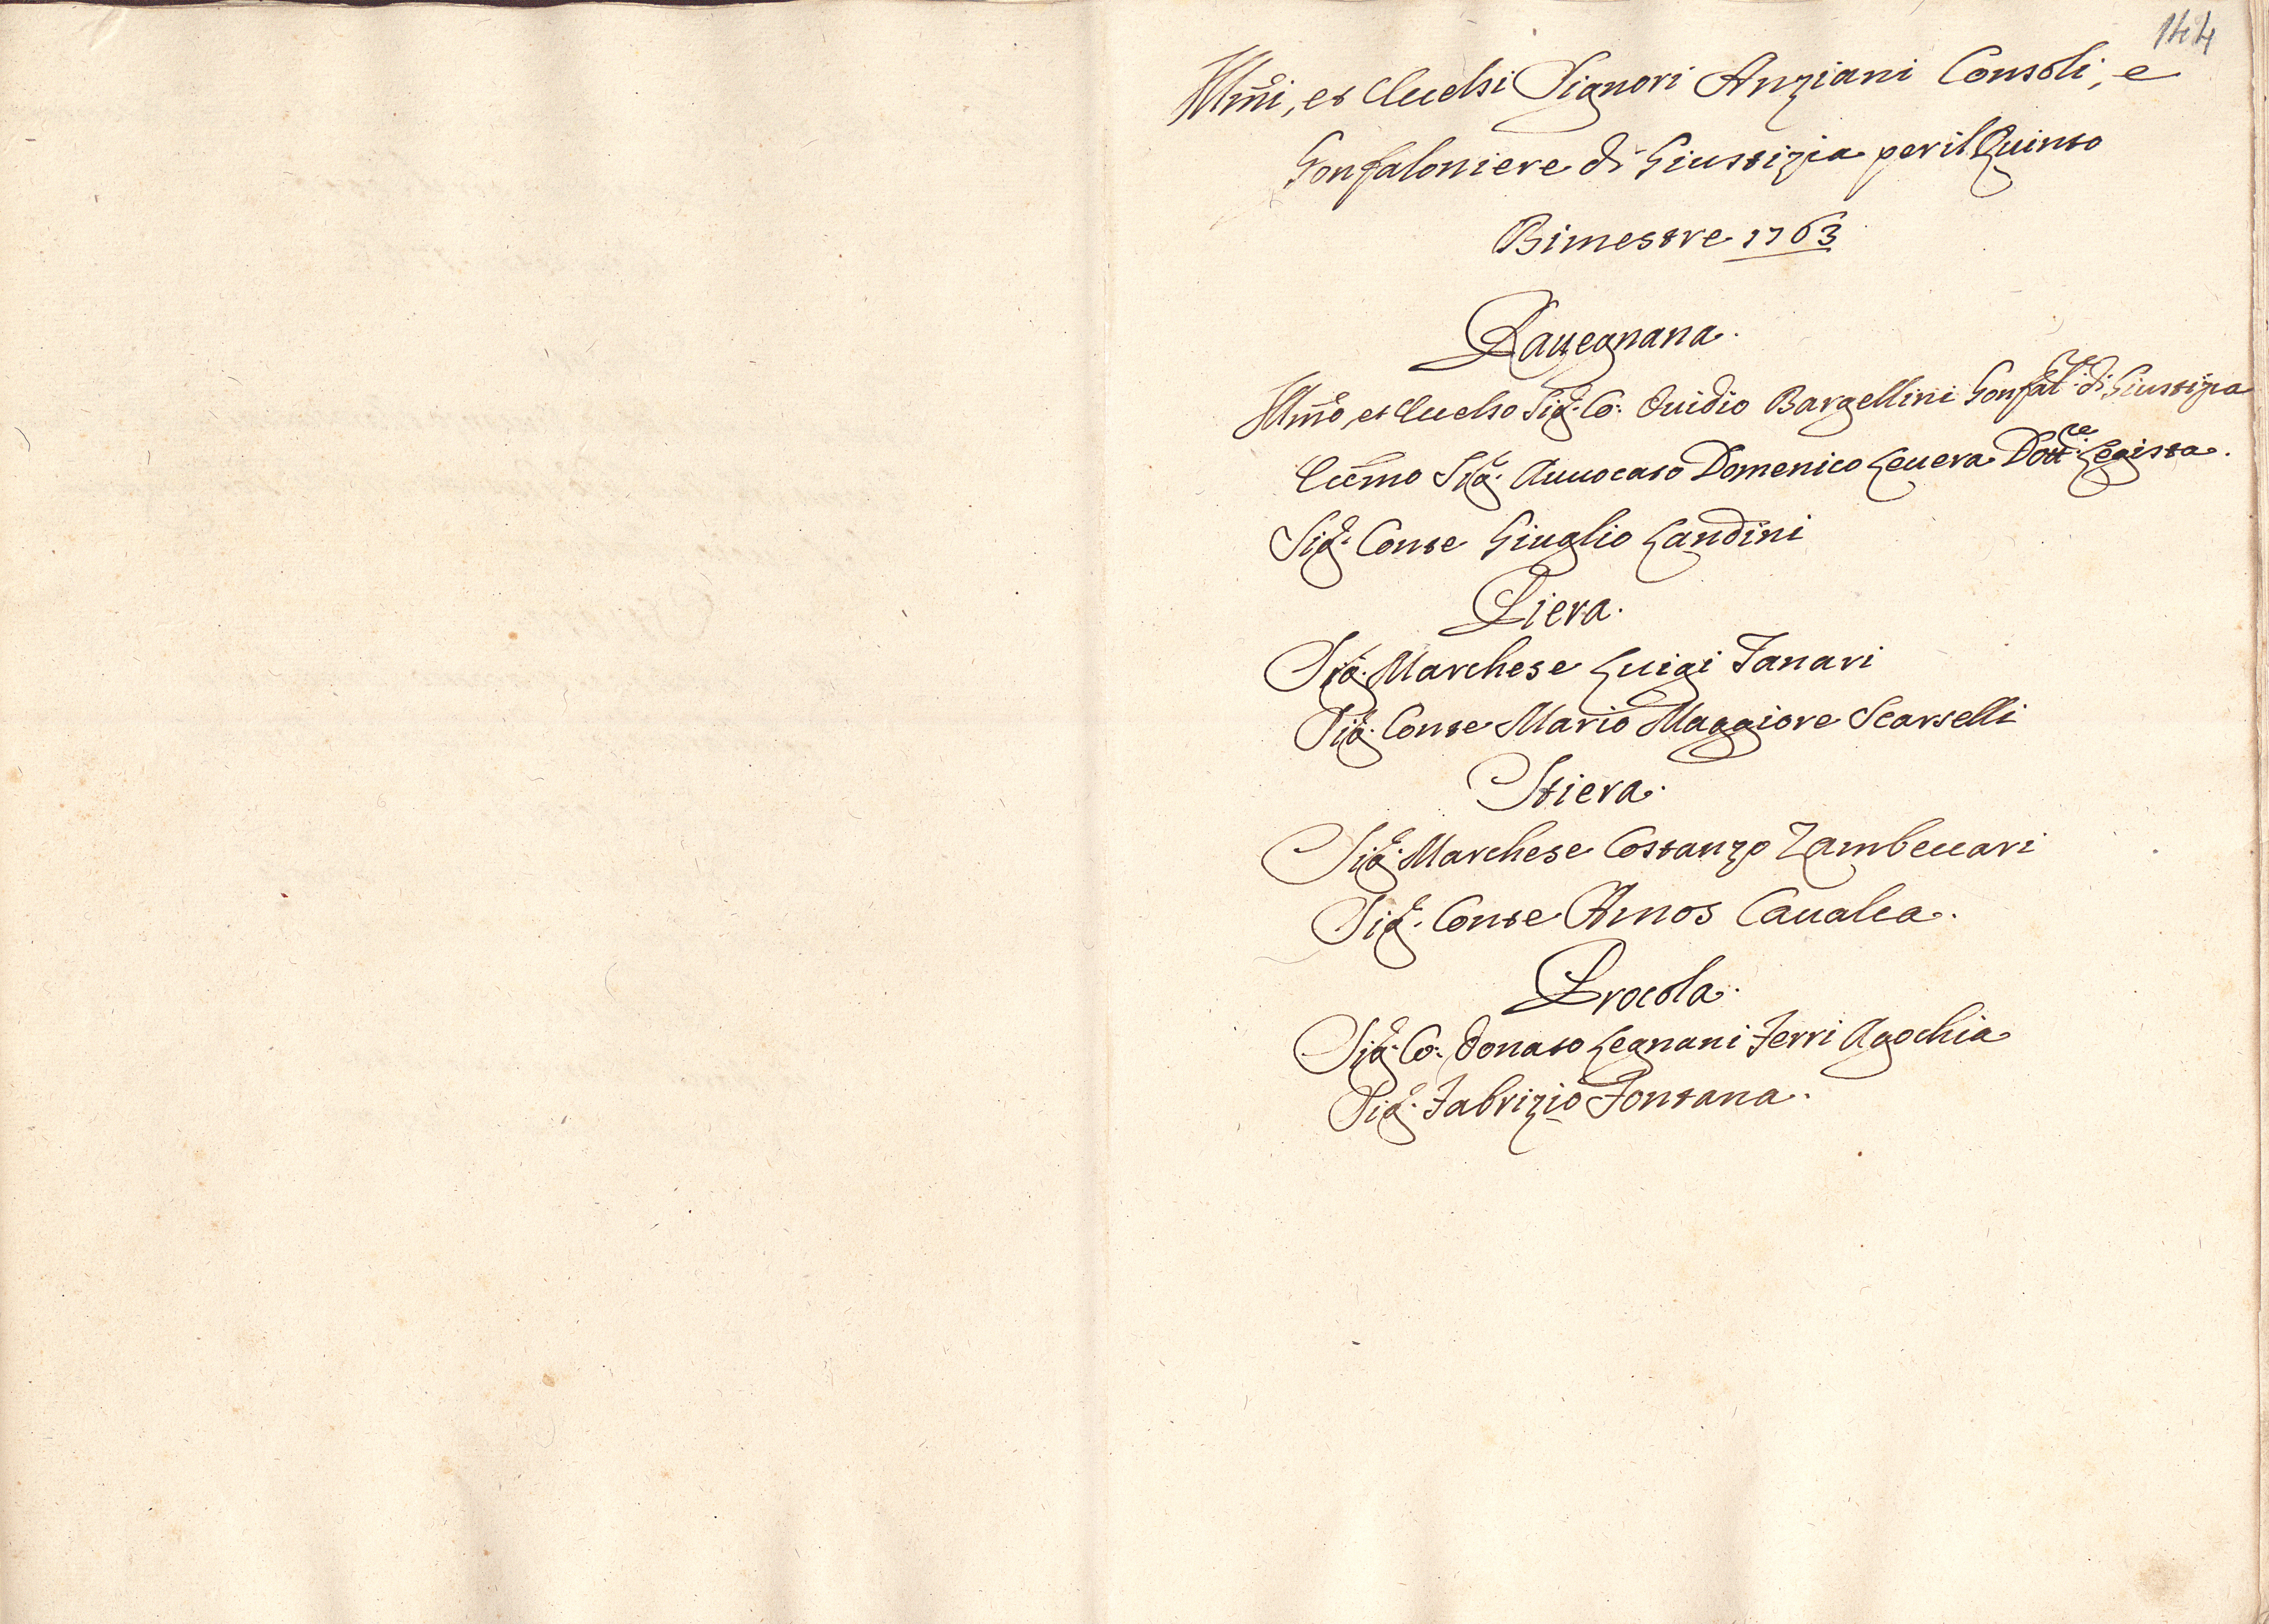 144
Illmi, et Eccelsi Signori Anziani Consoli, e
Gonfaloniere di Giustizia per il Quinto
Bimestre 1763
Rauegnana.
Illmo, et Eccelso Sig.r Co: Ouidio Bargellini Gonfal.re di Giustizia
Eccmo Sig.r Auuocato Domenico Leuera Dott.re Legista.
Sig.r Conte Giuglio Landini
Piera.
Sig.r Marchese Luigi Tanari
Sig.r Conte Mario Maggiore Scarselli
Stiera.
Sig.r Marchese Costanzo Zambeccari
Sig.r Conte Amos Caualca.
Procola.
Sig.r Co: Donato Legnani Ferri Agochia
Sig.r Fabrizio Fontana.